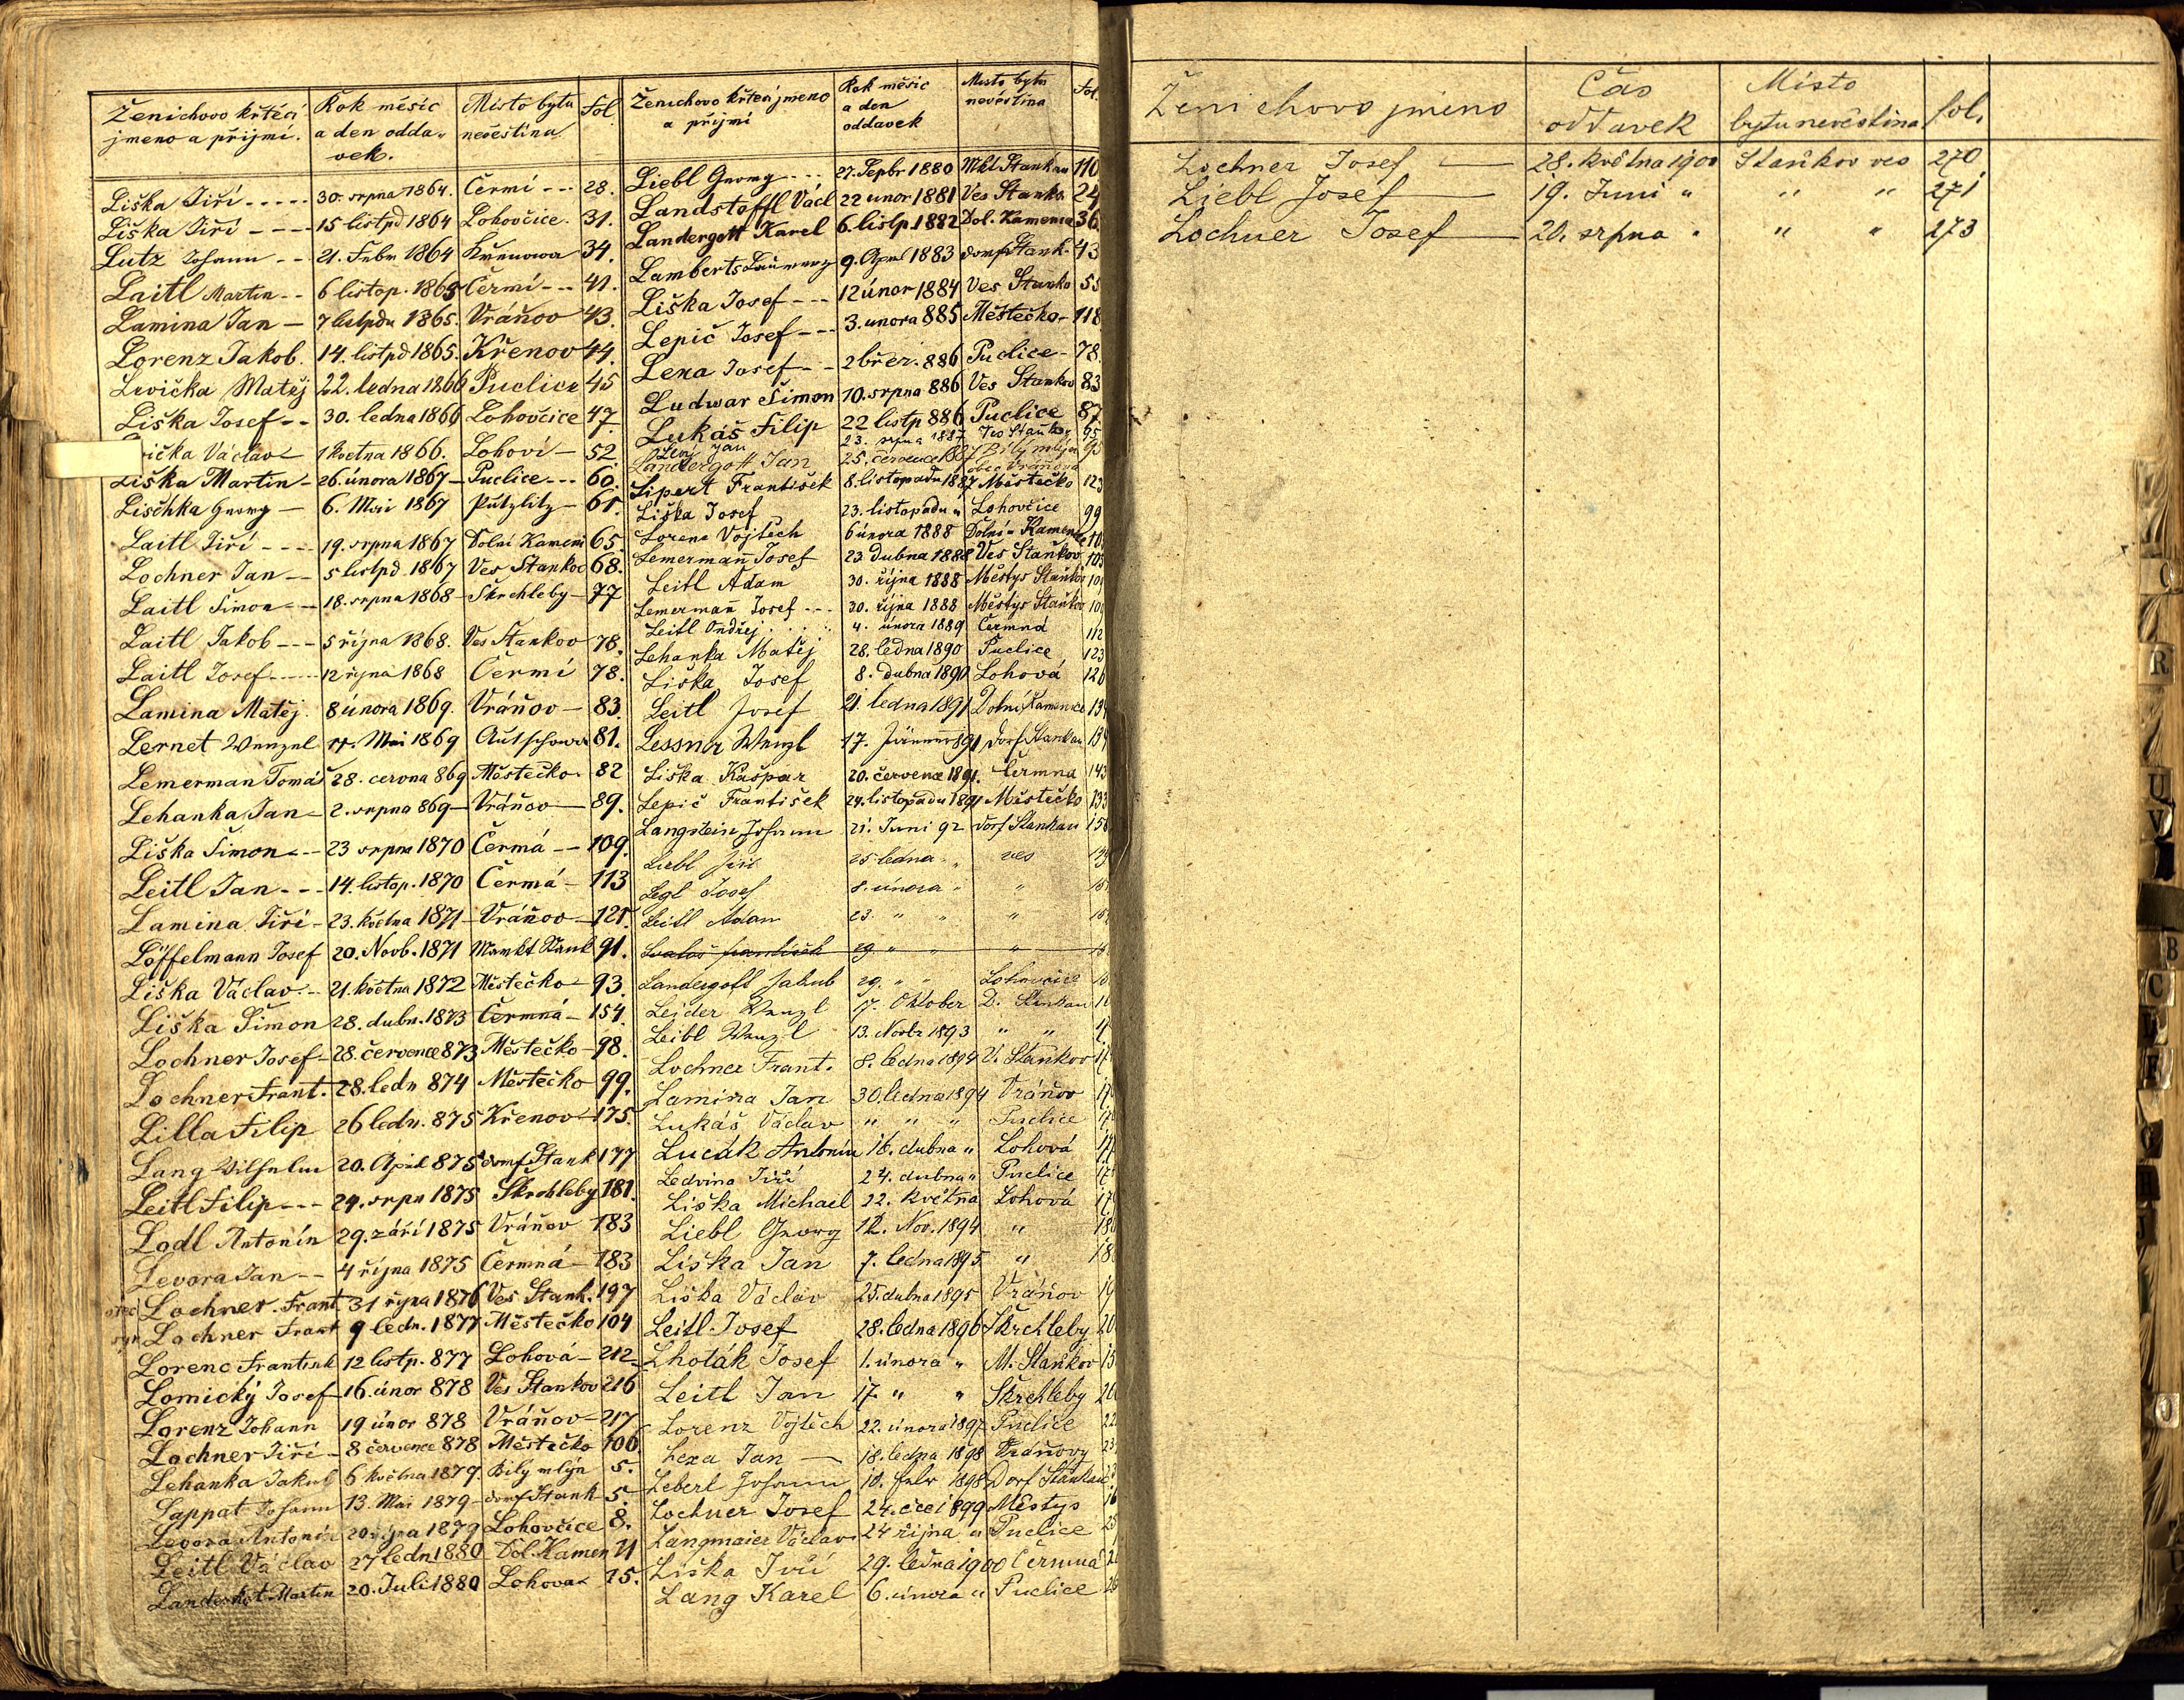 Ženichovo křtěcí jmeno a přijmi. Rok měsíc a den oddavek. Místo bytu nevěstina fol.
Liška Jiří 30. srpna 1864. Čermí 28.
Liška Jiří 15 listpd 1864 Lohovčice 31.
Lutz Johann 21. Febr 1864 Křenowa 34.
Laitl Martin 6 listop. 1865 Čermí 41.
Lamina Jan 7 listpdu 1865. Vráňov 43.
Lorenz Jakob. 14. listpd 1865. Křenov 44.
Levička Matěj 22. ledna 1866 Puclice 45
Liška Josef 30. ledna 1866 Lohovčice 47.
Václav 1 května 1866. Lohoví 52
Liška Martin 26. února 1867 Puclice 60.
Lischka Georg 6. Mai 1867 Putzlitz 61.
Laitl Jiří 19. srpna 1867 Dolní Kameni 65.
Lochner Jan 5 listpd 1867 Ves Stankov 68.
Laitl Šimon 18. srpna 1868 Skrchleby 77
Laitl Jakob 5 října 1868. Ves Stankov 78.
Laitl Josef 12 října 1868 Čermí 78.
Lamina Matěj. 8 února 1869. Vráňov 83.
Lernet Wenzel Mai 1869 81.
Lemerman Tomáš 28. června 869 Městečko 82
Lehanka Jan 2. srpna 869 Vráňov 89.
Liška Šimon 23 srpna 1870 Čermá 109.
Leitl Jan 14. listop. 1870 Čermá 113
Lamina Jiří 23. května 1871 Vráňov 121.
Löffelmann Josef 20. Novb. 1871 Markt Stank 91.
Liška Václav 21. května 1872 Městečko 93.
Liška Šimon 28. dubn. 1873 Čermná 154.
Lochner Josef 28. července 873 Městečko 98.
Lochner Frant. 28. ledn 874 Městečko 99.
Lilla Filip 26 ledn. 875 Křenov 175.
Lang Wilhelm 20. April 875 dorf Stank 177
Leitl Filip 24. srpn 1875 Škrchleby 181.
Lodl Antonín 29. září 1875 Vráňov 183
Levora Jan 4 října 1875 Čermná 183
otec Lochner Frant 31 října 1876 Ves Stank. 197
syn Lochner Frant 9 ledn. 1877 Městečko 104
Lorenc Frantisek 12 listp. 877 Lohová 212
Lomický Josef 16. únor 878 Ves Stankov 216
Lorenz Johann 19 únor 878 Vráňov 217
Lochner Jiří 8 července 878 Městečko 106
Lehanka Jakub 6 května 1879. Bílý mlýn 5.
Lappat Johann 13. Mai 1879 dorf Stank 5.
Levora Antonín 20 října 1879 Lohovčice 8.
Leitl Václav 27 ledn 1880 Dol. Kamen 11
Martin 20. Juli 1880 Lohova 15.
Ženichovo křtěcí jmeno a příjmí Rok měsíc a den oddavek Místo bytu nevěstina fol.
Liebl Georg 27. Septbr 1880 Mkt Stankau 110
Landstoffl Václ 22 únor 1881 Ves Stanko. 24
Landergott Karel 6. listp. 1882 Dol. Kamenice 36
Lamberts 9. April 1883 dorf Stank. 43
Liška Josef 12 únor 1884 Ves Stanko 55
Lepič Josef 3. února 885 Městečko 118
Lexa Josef 2 břez. 886 Puclice 78.
Ludwar Šimon 10. srpna 886 Ves Stankov 83
Lukáš Filip 22 listp 886 Puclice 87
Jan 23. srpna 1887 Ves Staňkov 95
Landergott Jan 25. července 1887 Bílý mlýn obec Vráňova 95
Lipert František 8. listopadu 1887 Městečko 123
Liška Josef 23. listopadu " Lohovčice 99
Lorenc Vojtěch 6 února 1888 Dolní Kamenice
Lemermann Josef 23 dubna 1888 Ves Staňkov 105
Leitl Adam 30. října 1888 Městys Staňkov
Lemermann Josef 30. října 1888 Městys Staňkov
Leitl Ondřej 4. února 1889 Čermná 112
Lehanka Matěj 28. ledna 1890 Puclice 123
Liška Josef 8. dubna 1890 Lohová 126
Leitl Josef 21. ledna 1891 Dolní Kamenice
Lessner Wenzl 17. Jänner 891 Dorf Stankau
Liška Kašpar 20. července 1891. Čermna 143
Lepič František 24. listopadu 1891 Městečko 133
Langstein Johann 21. Juni 92 Dorf Stankau
Liebl Jiří 25 ledna " ves
Legl Josef 8. února " "
Leitl Adam 23. " " "
František 29 " " "
Landergott Jakub 29. " " Lohovčice
Leider Wenzl 17. Oktober D. Stankau
Leibl Wenzl 13. Novbr 1893 " "
Lochner Frant. 8. ledna 1894 V. Staňkov
Lamina Jan 30. ledna 1894 Vráňov
Lukáš Václav " " " Puclice
Lucák Antonín 16. dubna " Lohová
Ledvina Jiří 24. dubna " Puclice
Liška Michael 22. května Lohová
Liebl Georg 12. Nov. 1894 "
Liška Jan 7. ledna 1895 "
Liška Václav 25. dubna 1895 Vráňov
Leitl Josef 28. ledna 1896 Škrchleby
Lhoták Josef 1. února " M. Staňkov
Leitl Jan 17. " " Škrchleby
Lorenz Vojtěch 22. února 1897 Puclice
Lexa Jan 18. ledna 1898 Vráňovy
Leberl Johann 10. Febr 1898 Dorf Stankau
Lochner Josef 24. 1899 Městys
Langmaier Václav 24 října " Puclice
Liška Jiří 29. ledna 1900 Čermná
Lang Karel 6. února " Puclice
Ženichovo jmeno Čas oddavek Místo bytu nevěstina fol.
Lochner Josef 28. května 1900 Staňkov ves 270
Liebl Josef 19. Juni " " " 271
Lochner Josef 20. srpna " " " 273